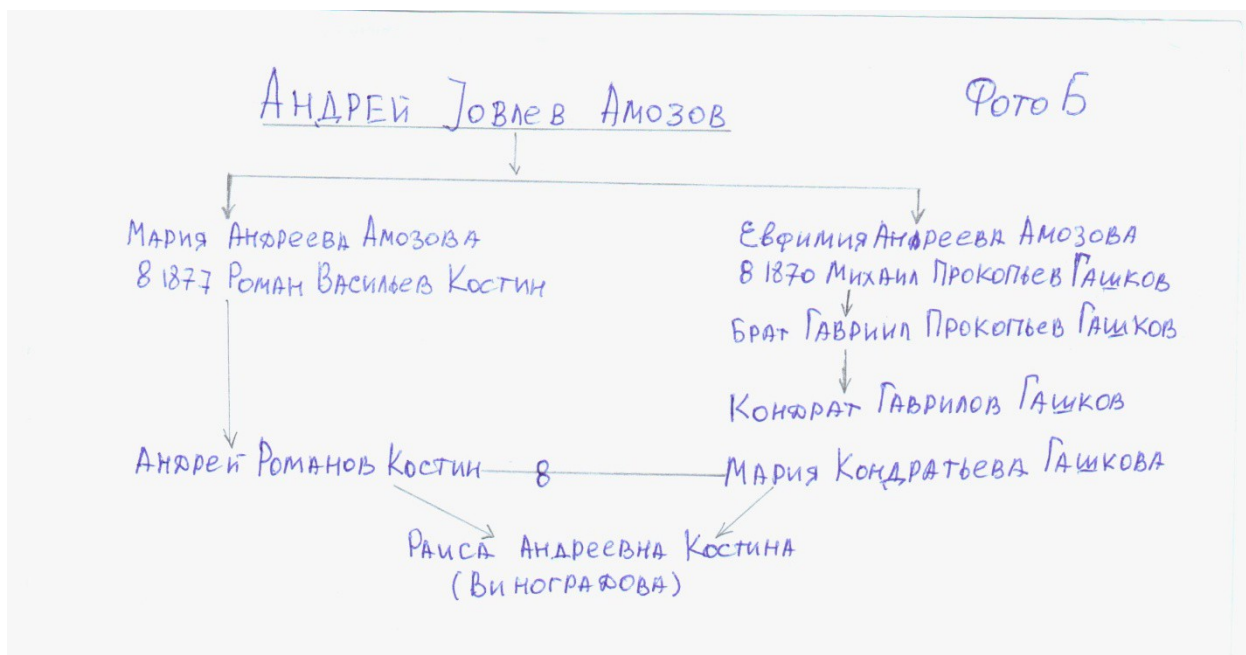 Андрей Јовлев Амозов
Фото Б
Мария Андреева Амозова
8 1877 Роман Васильев Костин
Евфимия Андреева Амозова
8 1870 Михаил Прокопьев Гашков
Брат Гавриил Прокопьев Гашков
Кондрат Гаврилов Гашков
Андрей Романов Костин 8 Мария Кондратьева Гашкова
Раиса Андреевна Костина
(Виноградова)